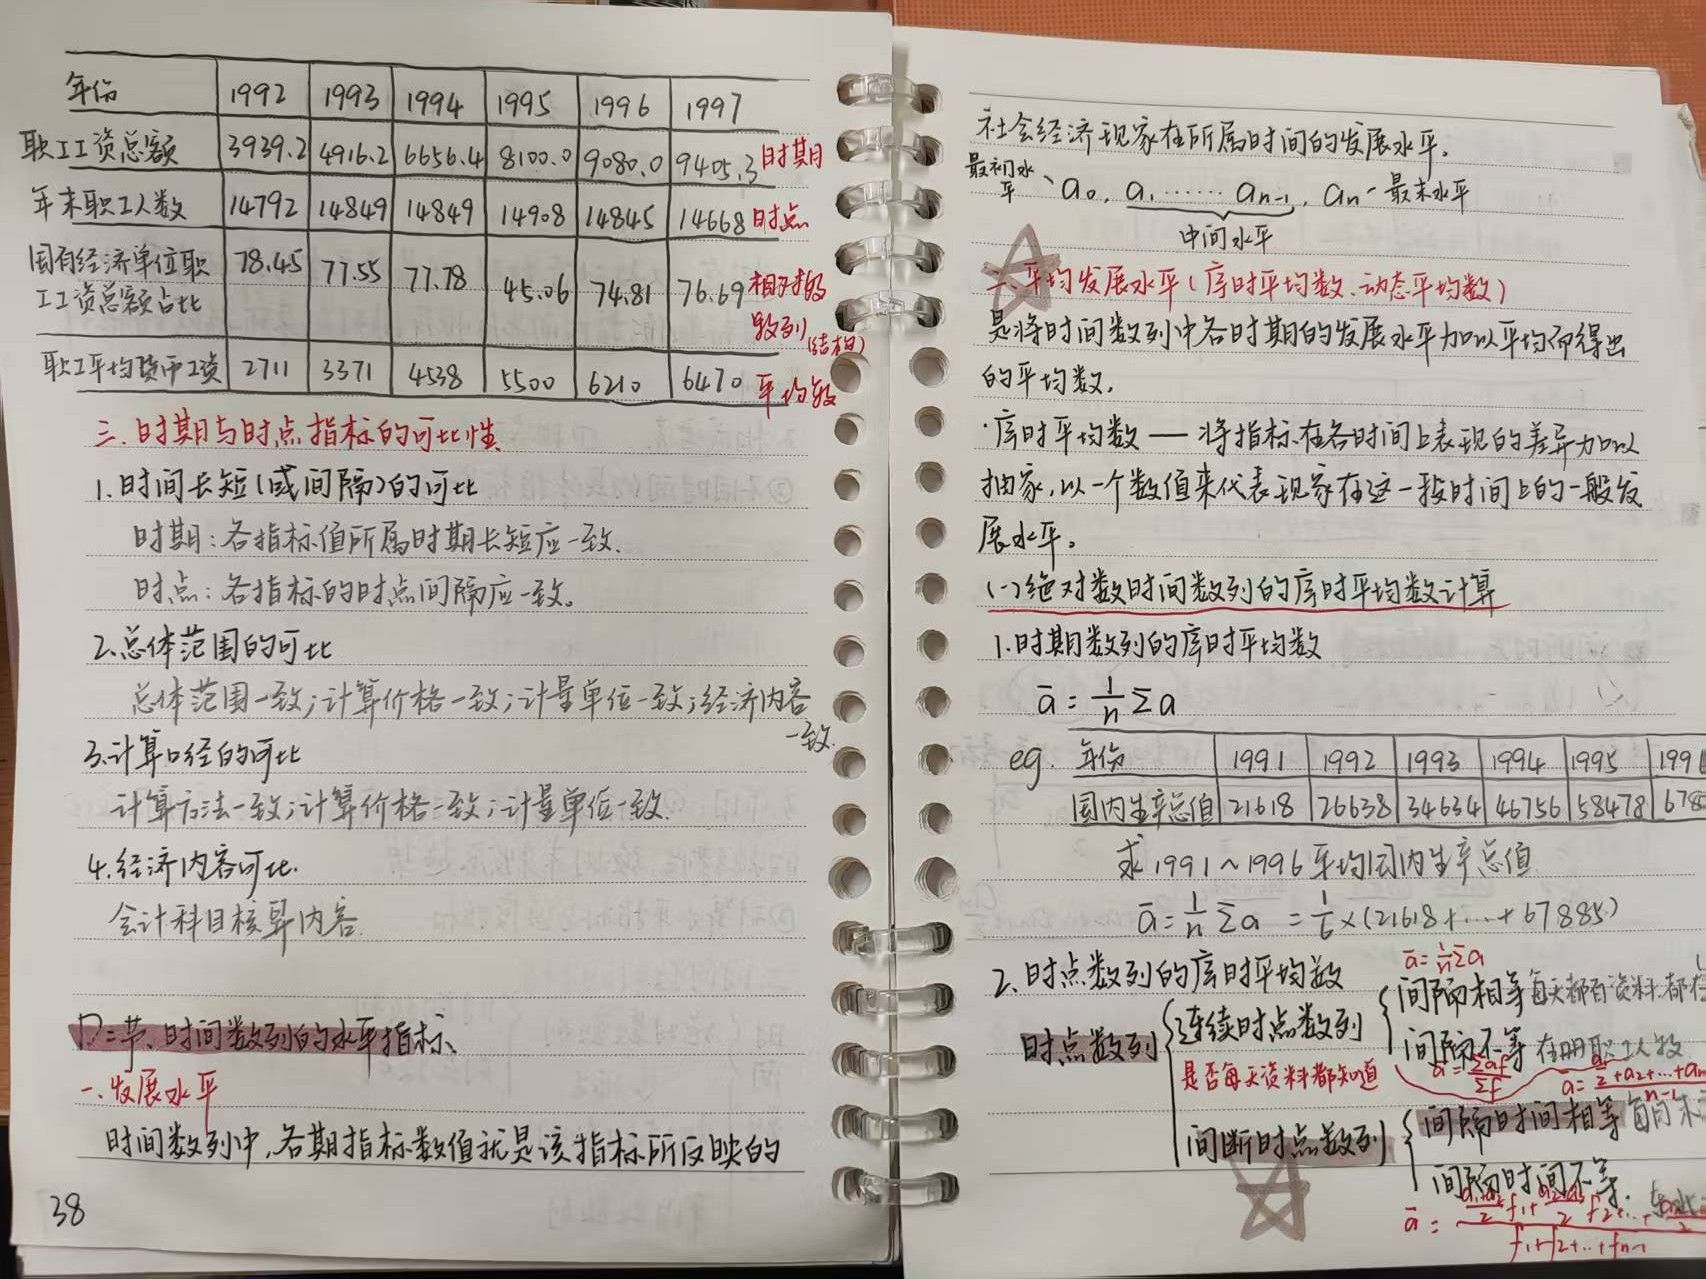 年份 1992 1993 1994 1995 1996 1997
职工工资总额 3939.2 4916.2 6656.4 8100.0 9080.0 9405.3 时期
年末职工人数 14792 14849 14849 14908 14845 14668 时点
国有经济单位职 78.45 77.55 77.78 45.06 74.81 76.69 相对数
工工资总额占比 数列(结构)
职工平均货币工资 2711 3371 4538 5500 6210 6470 平均数
三.时期与时点指标的可比性
1.时间长短(或间隔)的可比
时期:各指标值所属时期长短应一致.
时点:各指标的时点间隔应一致。
2.总体范围的可比
总体范围一致;计算价格一致;计量单位一致;经济内容
一致.
3.计算口径的可比
计算方法一致;计算价格一致;计量单位一致.
4.经济内容可比.
会计科目核算内容.
P二节、时间数列的水平指标、
一.发展水平
时间数列中,各期指标数值就是该指标所反映的
38
社会经济现象在所属时间的发展水平.
最初水平、a₀, a₁ ······ aₙ₋₁, aₙ - 最末水平
中间水平
二、平均发展水平(序时平均数、动态平均数)
是将时间数列中各时期的发展水平加以平均而得出
的平均数.
·序时平均数 — 将指标在各时间上表现的差异加以
抽象,以一个数值来代表现象在这一段时间上的一般发
展水平。
(一)绝对数时间数列的序时平均数计算
1.时期数列的序时平均数
ā = 1/n Σa
eg. 年份 1991 1992 1993 1994 1995 199
国内生产总值 21618 26638 34634 46756 58478 678
求1991~1996平均国内生产总值
ā = 1/n Σa = 1/6 ×(21618+···+67885)
ā = 1/n Σa
2.时点数列的序时平均数
间隔相等 每天都有资料.都
时点数列 连续时点数列
间隔不等 在册职工人数
是否每天资料都知道
ā = Σaf/Σf
+a₂+...+a
n-1
间断时点数列
间隔时间相等 每月末
间隔时间不等.
ā = (a₁+a₂)/2 f₁+(a₂+a₃)/2 f₂+...
f₁+f₂+...+fₙ₋₁